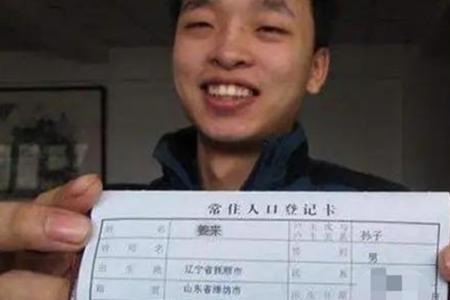 常住人口登记卡
姓名 姜来 户主或与户主关系 孙子
曾用名 性别 男
出生地 辽宁省抚顺市 民族
籍贯 山东省潍坊市 出生日期